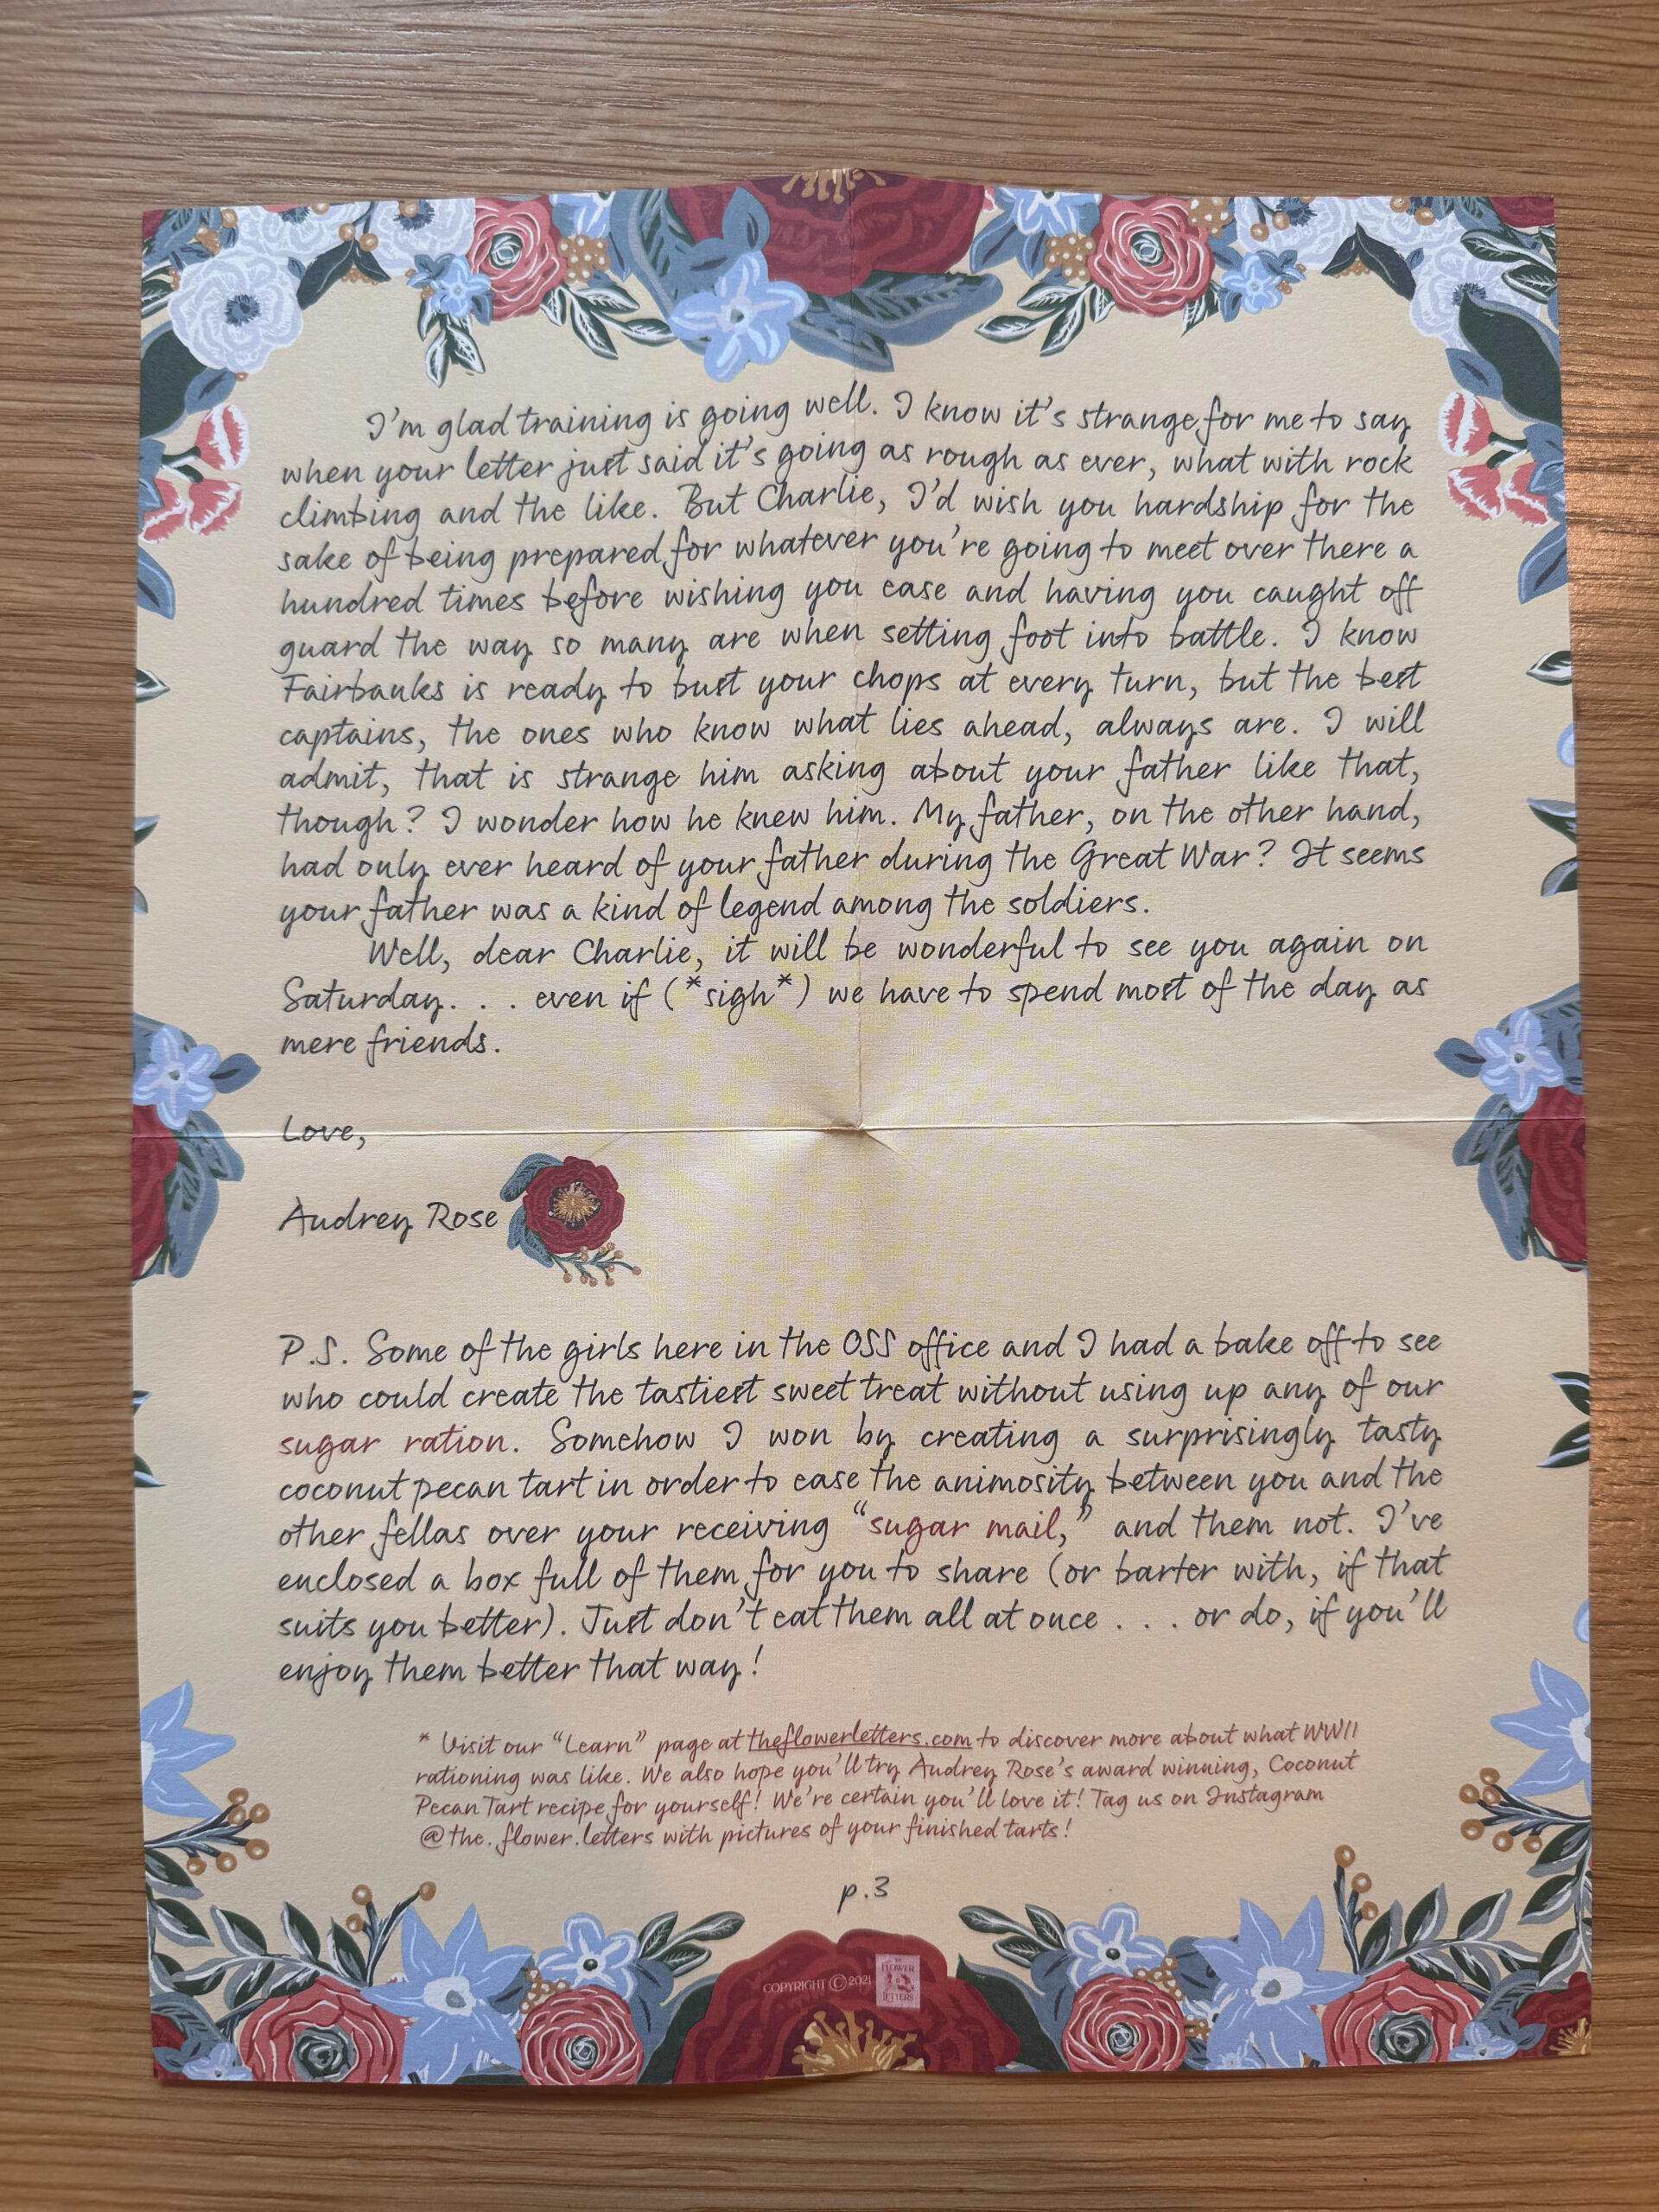 I'm glad training is going well. I know it's strange for me to say
when your letter just said it's going as rough as ever, what with rock
climbing and the like. But Charlie, I'd wish you hardship for the
sake of being prepared for whatever you're going to meet over there a
hundred times before wishing you ease and having you caught off
guard the way so many are when setting foot into battle. I know
Fairbanks is ready to bust your chops at every turn, but the best
captains, the ones who know what lies ahead, always are. I will
admit, that is strange him asking about your father like that,
though? I wonder how he knew him. My father, on the other hand,
had only ever heard of your father during the Great War? It seems
your father was a kind of legend among the soldiers.
Well, dear Charlie, it will be wonderful to see you again on
Saturday. . . even if (*sigh*) we have to spend most of the day as
mere friends.
Love,
Audrey Rose
P.S. Some of the girls here in the OSS office and I had a bake off to see
who could create the tastiest sweet treat without using up any of our
sugar ration. Somehow I won by creating a surprisingly tasty
coconut pecan tart in order to ease the animosity between you and the
other fellas over your receiving "sugar mail," and them not. I've
enclosed a box full of them for you to share (or barter with, if that
suits you better). Just don't eat them all at once . . . or do, if you'll
enjoy them better that way!
* Visit our "Learn" page at theflowerletters.com to discover more about what WWII
rationing was like. We also hope you'll try Audrey Rose's award winning, Coconut
Pecan Tart recipe for yourself! We're certain you'll love it! Tag us on Instagram
@the.flower.letters with pictures of your finished tarts!
p.3
COPYRIGHT © 2021
FLOWER
LETTERS